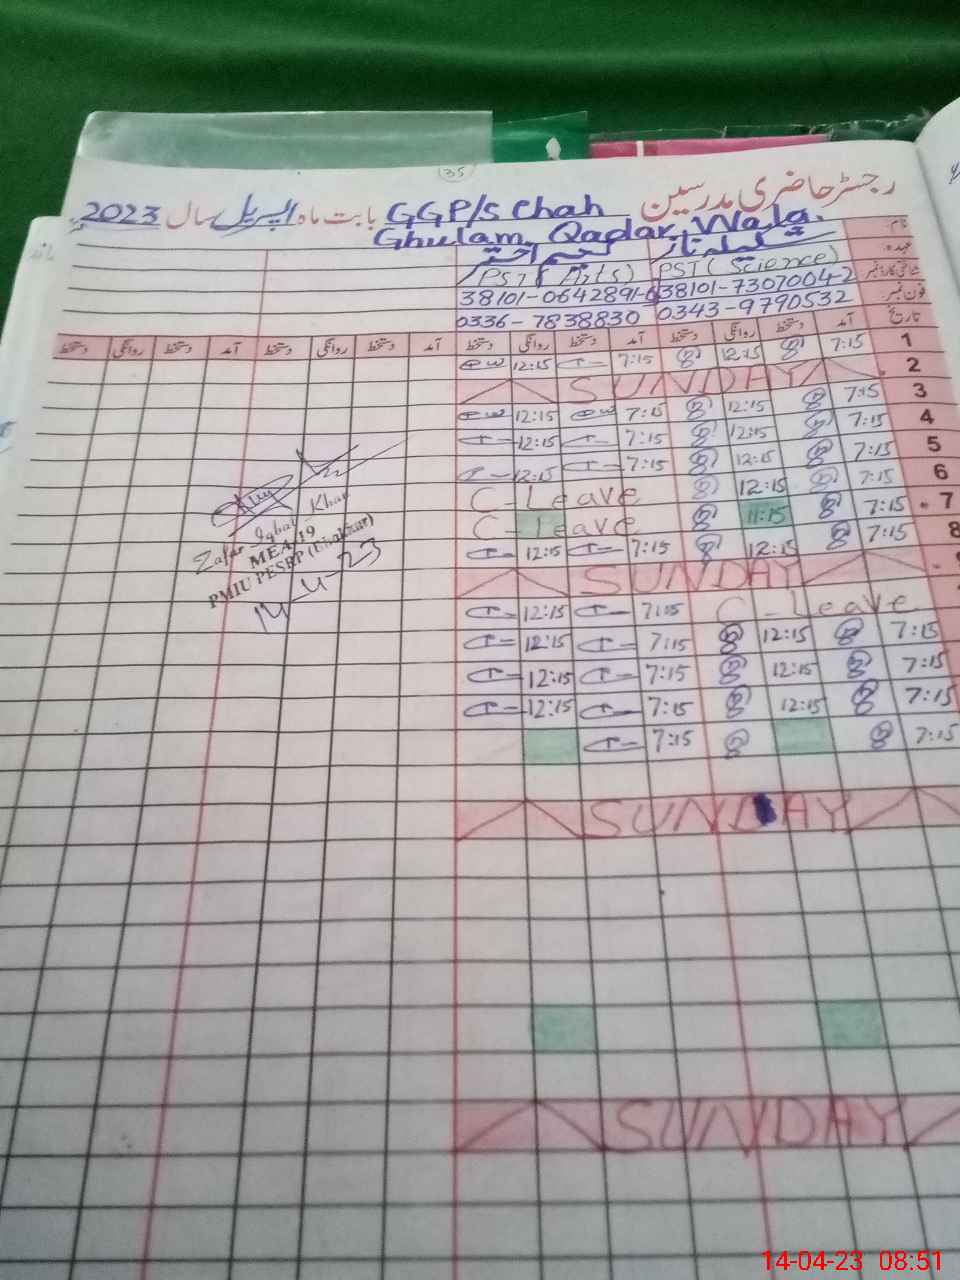 35
رجسٹر حاضری مدرسین GGP/S Chah بابت ماہ اپریل سال 2023
Ghulam Qadar Wala.
نام
عہدہ PST (Science) PST (Arts)
شناختی کارڈ نمبر 38101-7307004-2 38101-0642891-6
فون نمبر 0343-9790532 0336-7838830
تاریخ آمد دستخط روانگی دستخط آمد دستخط روانگی دستخط آمد دستخط روانگی دستخط آمد دستخط روانگی دستخط
1 7:15 12:15 7:15 12:15
2 SUNDAY
3 7:15 12:15 7:15 12:15
4 7:15 12:15 7:15 12:15
5 7:15 12:15 7:15 12:15
6 7:15 12:15 C-Leave
7 7:15 11:15 C-Leave
8 7:15 12:15 7:15 12:15
SUNDAY
C-Leave 7:15 12:15
7:15 12:15 7:15 12:15
7:15 12:15 7:15 12:15
7:15 12:15 7:15 12:15
7:15 7:15
SUNDAY
SUNDAY
Zafar Iqbal Khan
MEA-19
PMIU PESRP
14-4-23
14-04-23 08:51